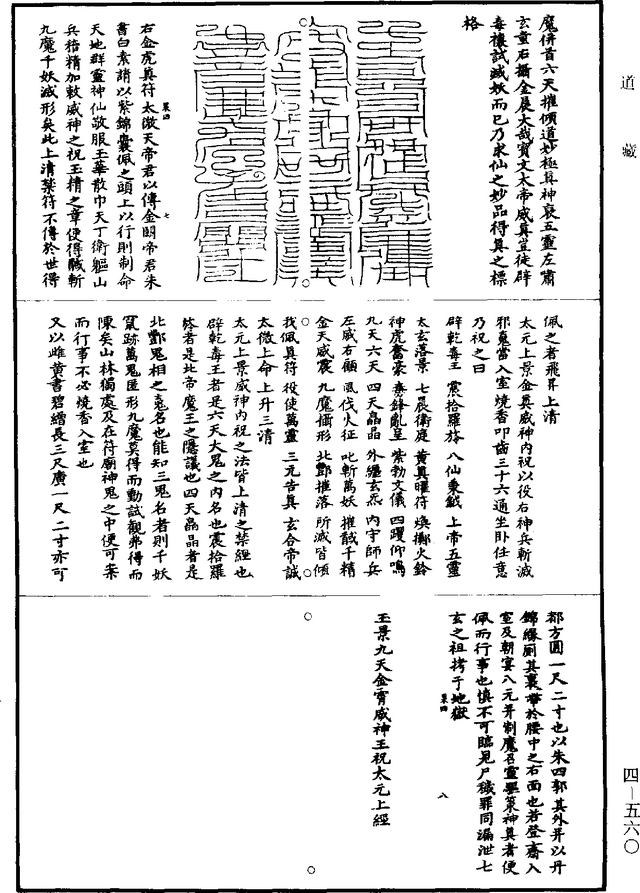 道藏
魔併首六天摧傾道妙極真神衰五靈左肅
玄童右攝金晨大哉寶文太帝威真豈徒辟
毒穰試滅妖而已乃求仙之妙品得真之標
格
右金虎真符太微天帝君以傳金明帝君朱
書白素請以紫錦囊佩之頭上以行則制命
天地群靈神仙敬服玉華散巾天丁衛軀山
兵揹精加敕威神之祝玉精之章便得馘斬
九魔千妖滅形矣此上清禁符不傳於世得
佩之者飛昇上清
太元上景金真威神內祝以役右神兵斬滅
邪鬼當入室燒香叩齒三十六通坐臥任意
乃祝之曰
辟乾毒王 震拾羅旂 八仙秉鉞 上帝五靈
太玄落景 七晨衛庭 黃真曜符 煥擲火鈴
神虎奮豪 毒鋒亂呈 紫勃文儀 四躍仰鳴
九天六天 四天晶晶 外纏玄炁 內守師兵
左威右顧 風伐火征 叱斬萬妖 摧馘千精
金天威震 九魔攝形 北酆摧落 所滅皆傾
我佩真符 役使萬靈 三元告真 玄合帝誠
太微上命 上升三清
太元上景威神內祝之法皆上清之禁經也
辟乾毒王者是六天大鬼之內名也震拾羅
旂者是北帝魔王之隱諱也四天晶晶者是
北酆鬼相之鬼名也能知三鬼名者則千妖
竄跡萬鬼匿形九魔莫得而動試觀弗得而
陳矣山林獨處及在符廟神鬼之中便可案
而行事不必燒香入室也
又以雌黃書碧繒長三尺廣一尺二寸亦可
都方圓一尺二寸也以朱四郭其外并以丹
錦緣廁其裏帶於腰中之右面也若登齋入
室及朝宴八元并制魔召靈畢策神真者便
佩而行事也慎不可臨見尸穢罪同漏泄七
玄之祖拷于地獄
玉景九天金霄威神王祝太元上經
四—五六〇